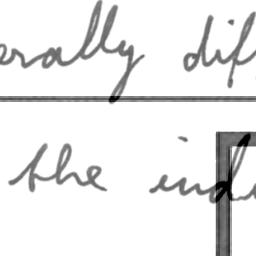 erally dif
the indi